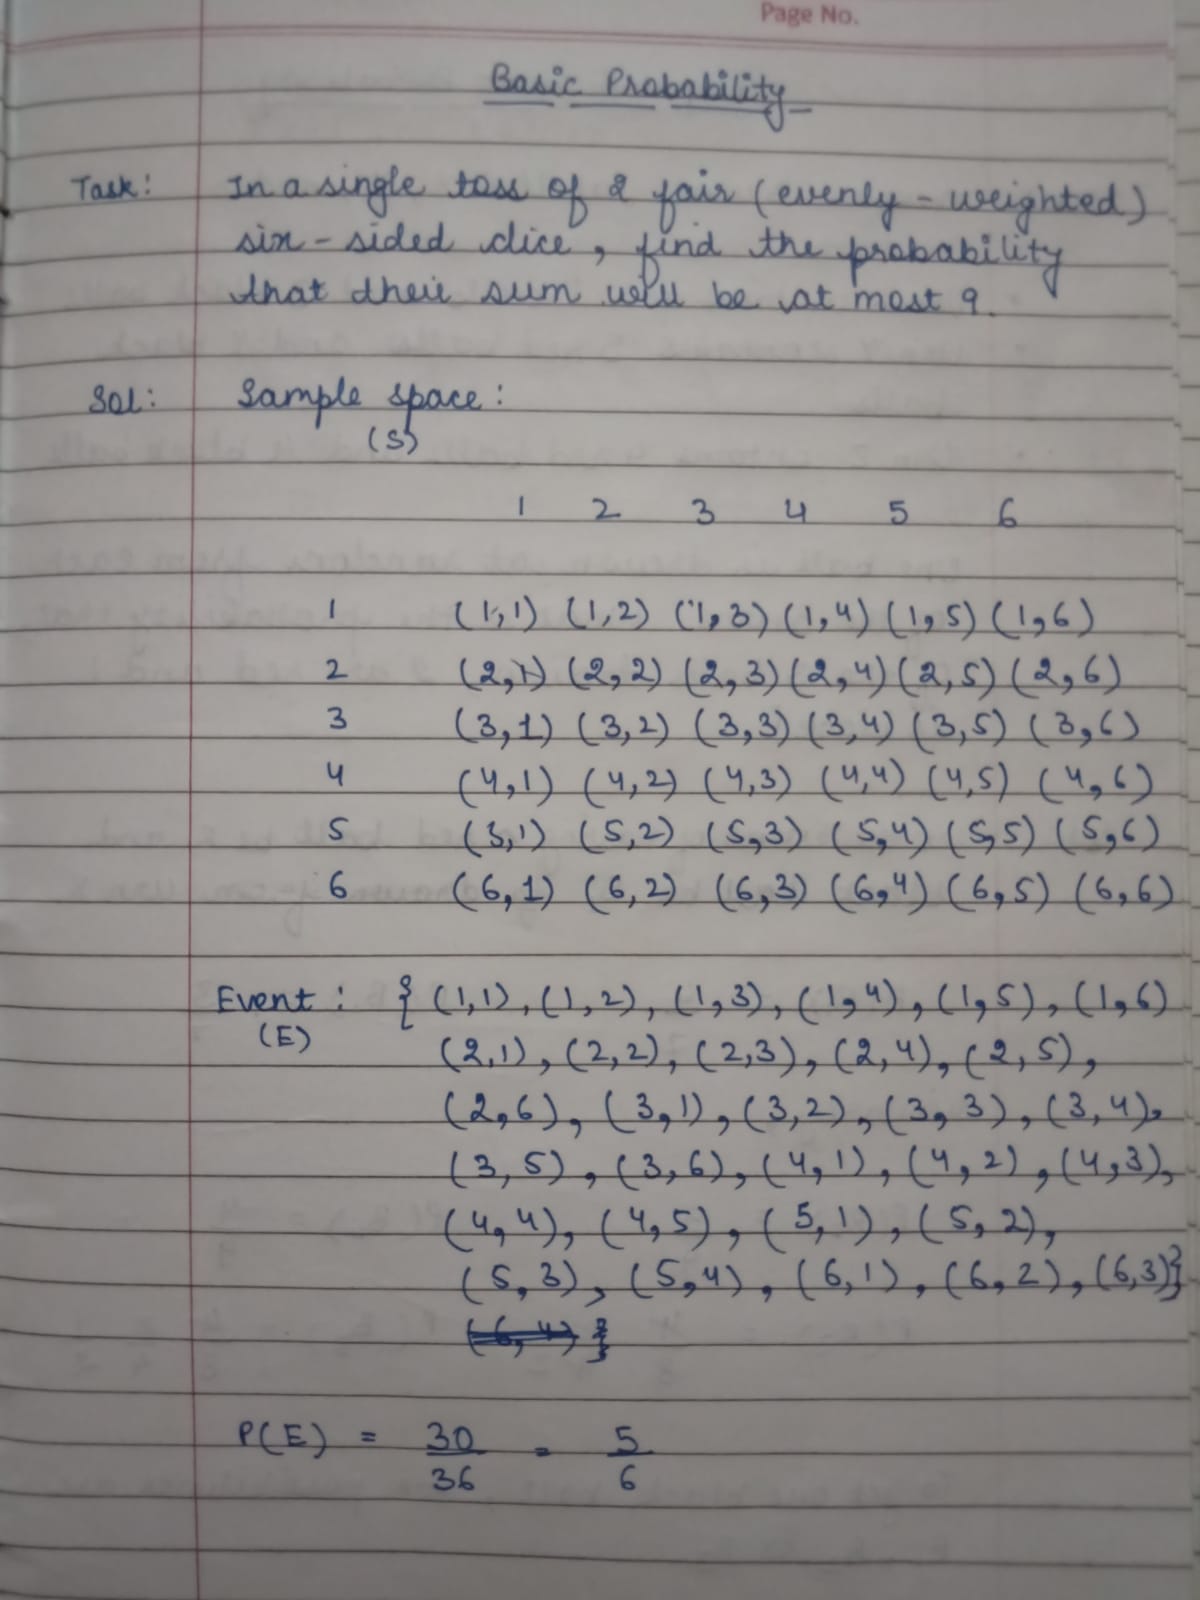 Page No.
Basic Probability
Task: In a single toss of 2 fair (evenly-weighted)
six-sided dice, find the probability
that their sum will be at most 9.
Sol: Sample space:
(S)
1 2 3 4 5 6
1 (1,1) (1,2) (1,3) (1,4) (1,5) (1,6)
2 (2,1) (2,2) (2,3) (2,4) (2,5) (2,6)
3 (3,1) (3,2) (3,3) (3,4) (3,5) (3,6)
4 (4,1) (4,2) (4,3) (4,4) (4,5) (4,6)
5 (5,1) (5,2) (5,3) (5,4) (5,5) (5,6)
6 (6,1) (6,2) (6,3) (6,4) (6,5) (6,6)
Event: { (1,1), (1,2), (1,3), (1,4), (1,5), (1,6)
(E) (2,1), (2,2), (2,3), (2,4), (2,5),
(2,6), (3,1), (3,2), (3,3), (3,4),
(3,5), (3,6), (4,1), (4,2), (4,3),
(4,4), (4,5), (5,1), (5,2),
(5,3), (5,4), (6,1), (6,2), (6,3)}
(6,4) }
P(E) = 30/36 = 5/6